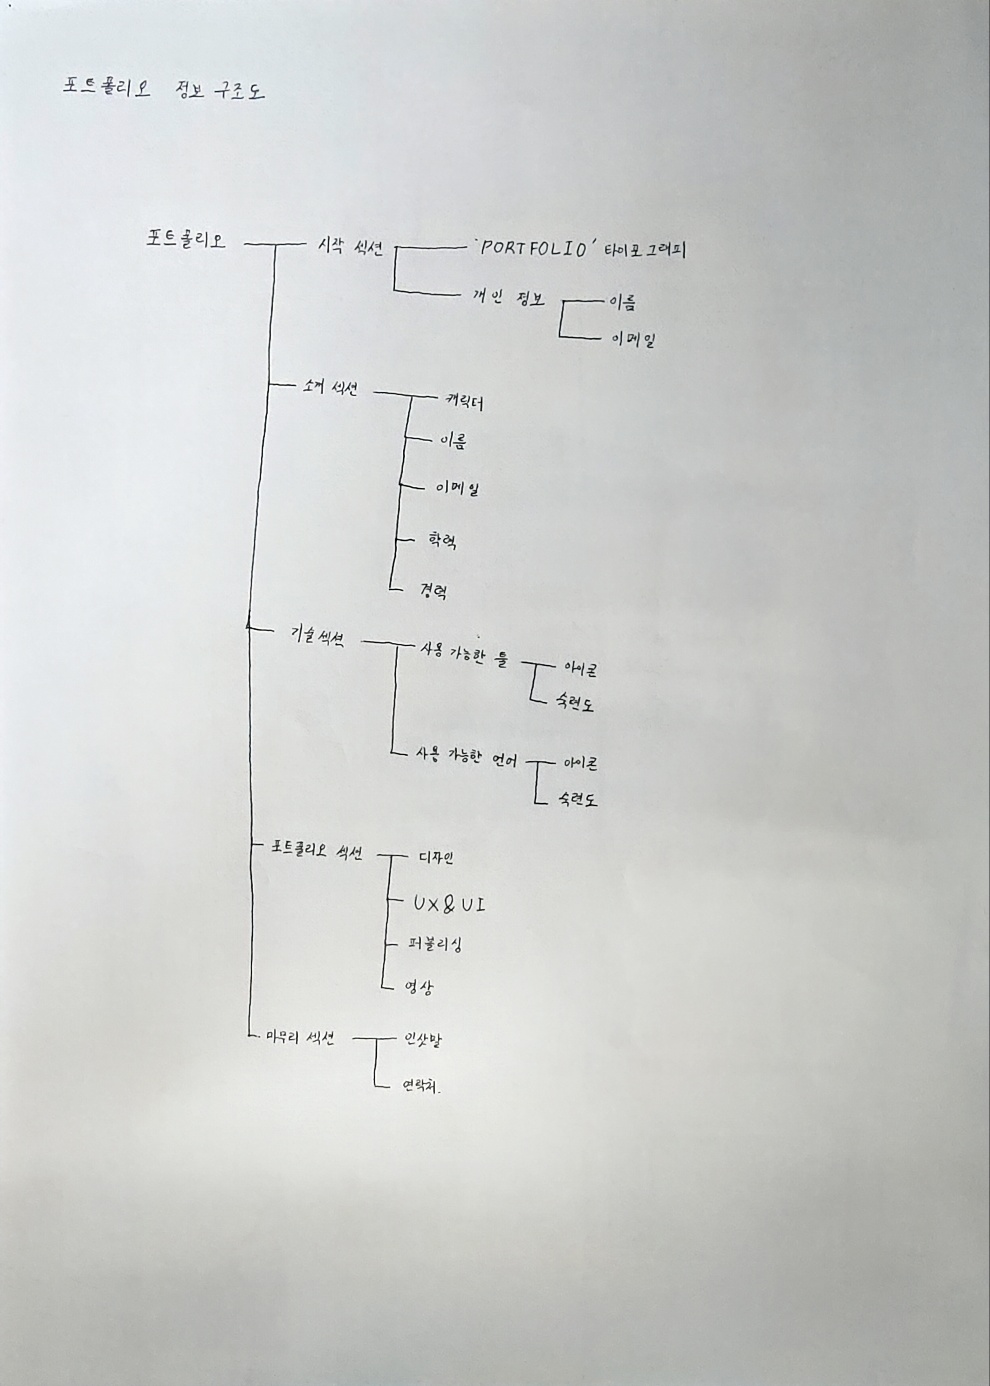 포트폴리오 정보 구조도
포트폴리오 시작 섹션 'PORTFOLIO' 타이포그래피
개인 정보 이름
이메일
소개 섹션 캐릭터
이름
이메일
학력
경력
기술 섹션 사용 가능한 툴 아이콘
숙련도
사용 가능한 언어 아이콘
숙련도
포트폴리오 섹션 디자인
UX & UI
퍼블리싱
영상
마무리 섹션 인삿말
연락처.